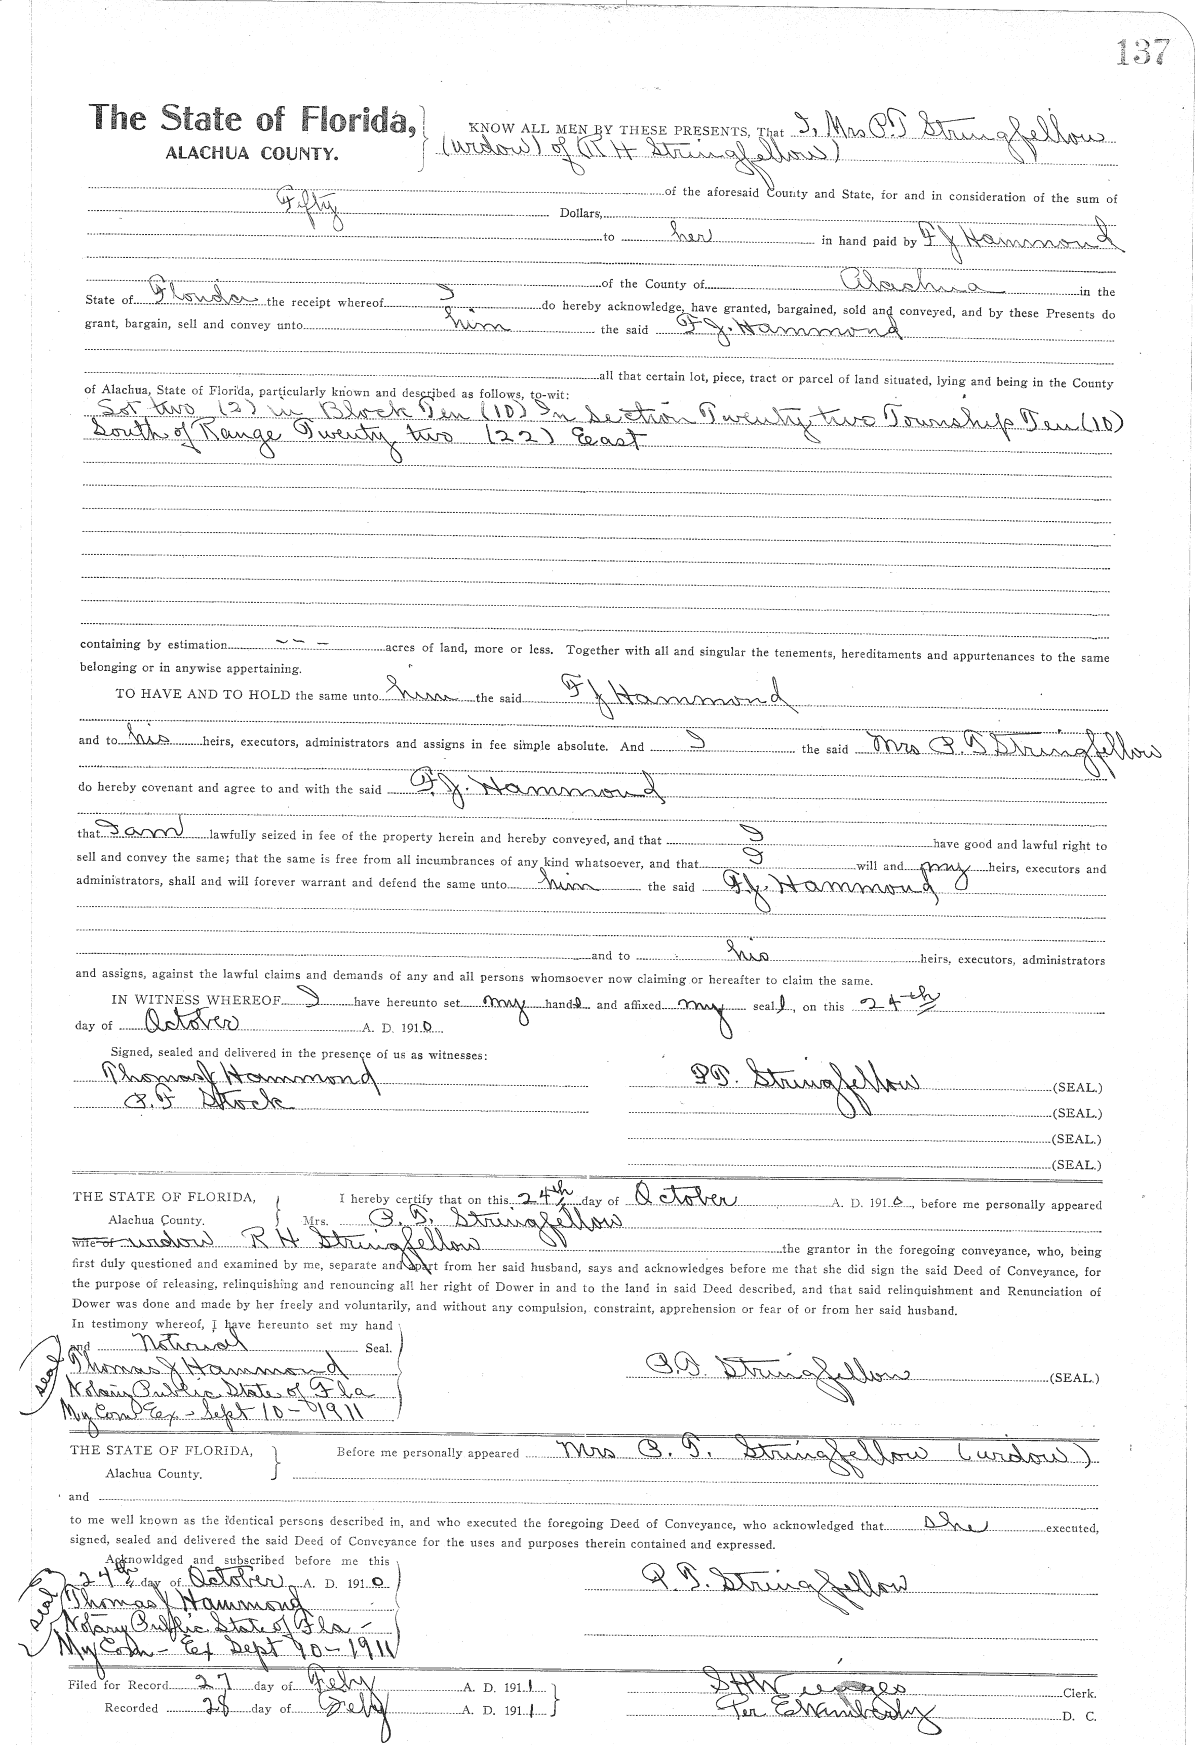 137
The State of Florida,
ALACHUA COUNTY.
KNOW ALL MEN BY THESE PRESENTS, That I, Mrs P.T Stringfellow
(widow) of (R H Stringfellow)
of the aforesaid County and State, for and in consideration of the sum of
Fifty Dollars,
to her in hand paid by F J Hammond
of the County of Alachua in the
State of Florida the receipt whereof I do hereby acknowledge, have granted, bargained, sold and conveyed, and by these Presents do
grant, bargain, sell and convey unto him the said F J. Hammond
all that certain lot, piece, tract or parcel of land situated, lying and being in the County
of Alachua, State of Florida, particularly known and described as follows, to-wit:
Lot two (2) in Block Ten (10) In Section Twenty two Township Ten (10)
South of Range Twenty two (22) East
containing by estimation -- - acres of land, more or less. Together with all and singular the tenements, hereditaments and appurtenances to the same
belonging or in anywise appertaining.
TO HAVE AND TO HOLD the same unto him the said F J Hammond
and to his heirs, executors, administrators and assigns in fee simple absolute. And I the said Mrs P.T Stringfellow
do hereby covenant and agree to and with the said F.J. Hammond
that I am lawfully seized in fee of the property herein and hereby conveyed, and that I have good and lawful right to
sell and convey the same; that the same is free from all incumbrances of any kind whatsoever, and that I will and my heirs, executors and
administrators, shall and will forever warrant and defend the same unto him the said F.J. Hammond
and to his heirs, executors, administrators
and assigns, against the lawful claims and demands of any and all persons whomsoever now claiming or hereafter to claim the same.
IN WITNESS WHEREOF I have hereunto set my hand and affixed my seal, on this 24th
day of October A. D. 1910
Signed, sealed and delivered in the presence of us as witnesses:
Thomas J Hammond P.T. Stringfellow (SEAL.)
P.F Stock (SEAL.)
(SEAL.)
(SEAL.)
THE STATE OF FLORIDA, I hereby certify that on this 24th day of October A. D. 1910, before me personally appeared
Alachua County. Mrs. P. T. Stringfellow
wife of widow R H Stringfellow the grantor in the foregoing conveyance, who, being
first duly questioned and examined by me, separate and apart from her said husband, says and acknowledges before me that she did sign the said Deed of Conveyance, for
the purpose of releasing, relinquishing and renouncing all her right of Dower in and to the land in said Deed described, and that said relinquishment and Renunciation of
Dower was done and made by her freely and voluntarily, and without any compulsion, constraint, apprehension or fear of or from her said husband.
In testimony whereof, I have hereunto set my hand
and Notarial Seal.
seal Thomas J Hammond P.T. Stringfellow (SEAL.)
Notary Public State of Fla
My Com Ex - Sept 10 - 1911
THE STATE OF FLORIDA, Before me personally appeared Mrs P. T. Stringfellow (widow)
Alachua County.
and
to me well known as the identical persons described in, and who executed the foregoing Deed of Conveyance, who acknowledged that she executed,
signed, sealed and delivered the said Deed of Conveyance for the uses and purposes therein contained and expressed.
Acknowldged and subscribed before me this
24th day of October A. D. 1910 P. T. Stringfellow
seal Thomas J Hammond
Notary Public State of Fla -
My Com - Ex Sept 10 - 1911
Filed for Record 27 day of Feby A. D. 1911 S H Wienges Clerk.
Recorded 28 day of Feby A. D. 1911 Per D. C.